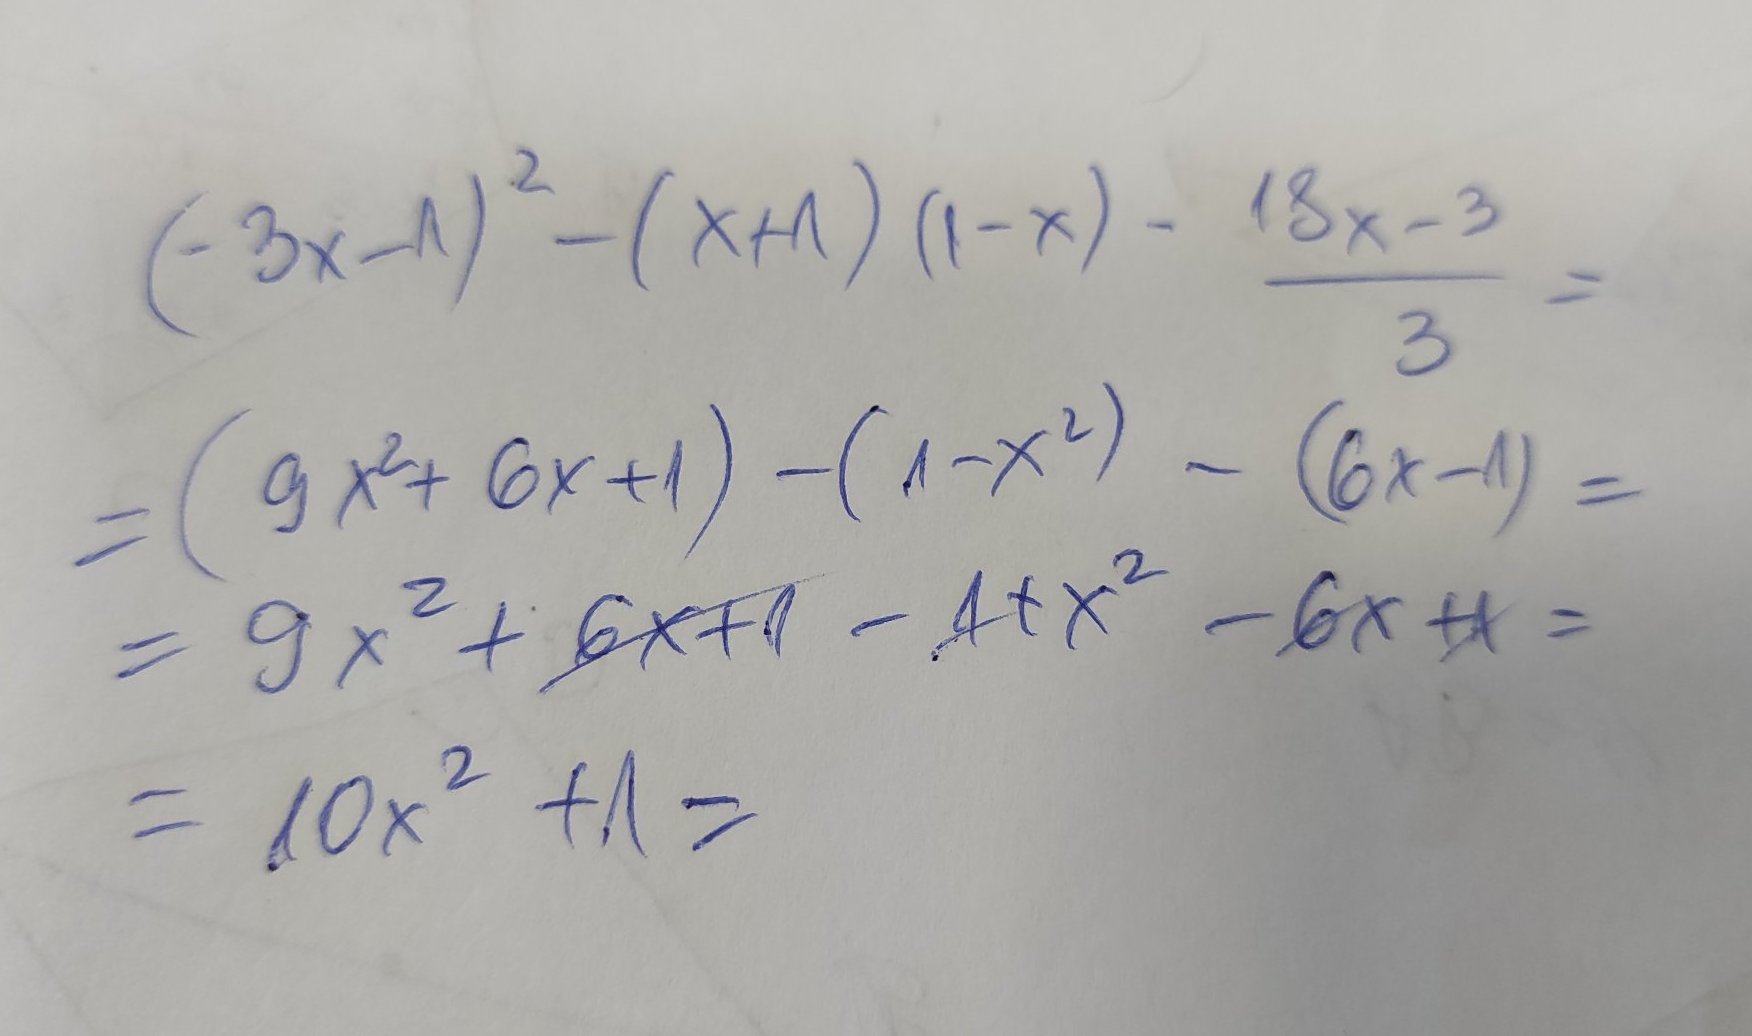 (-3x-1)² - (x+1)(1-x) - (18x-3)/3 =
= (9x²+6x+1) - (1-x²) - (6x-1) =
= 9x² + 6x+1 - 1+x² - 6x+1 =
= 10x² +1 =